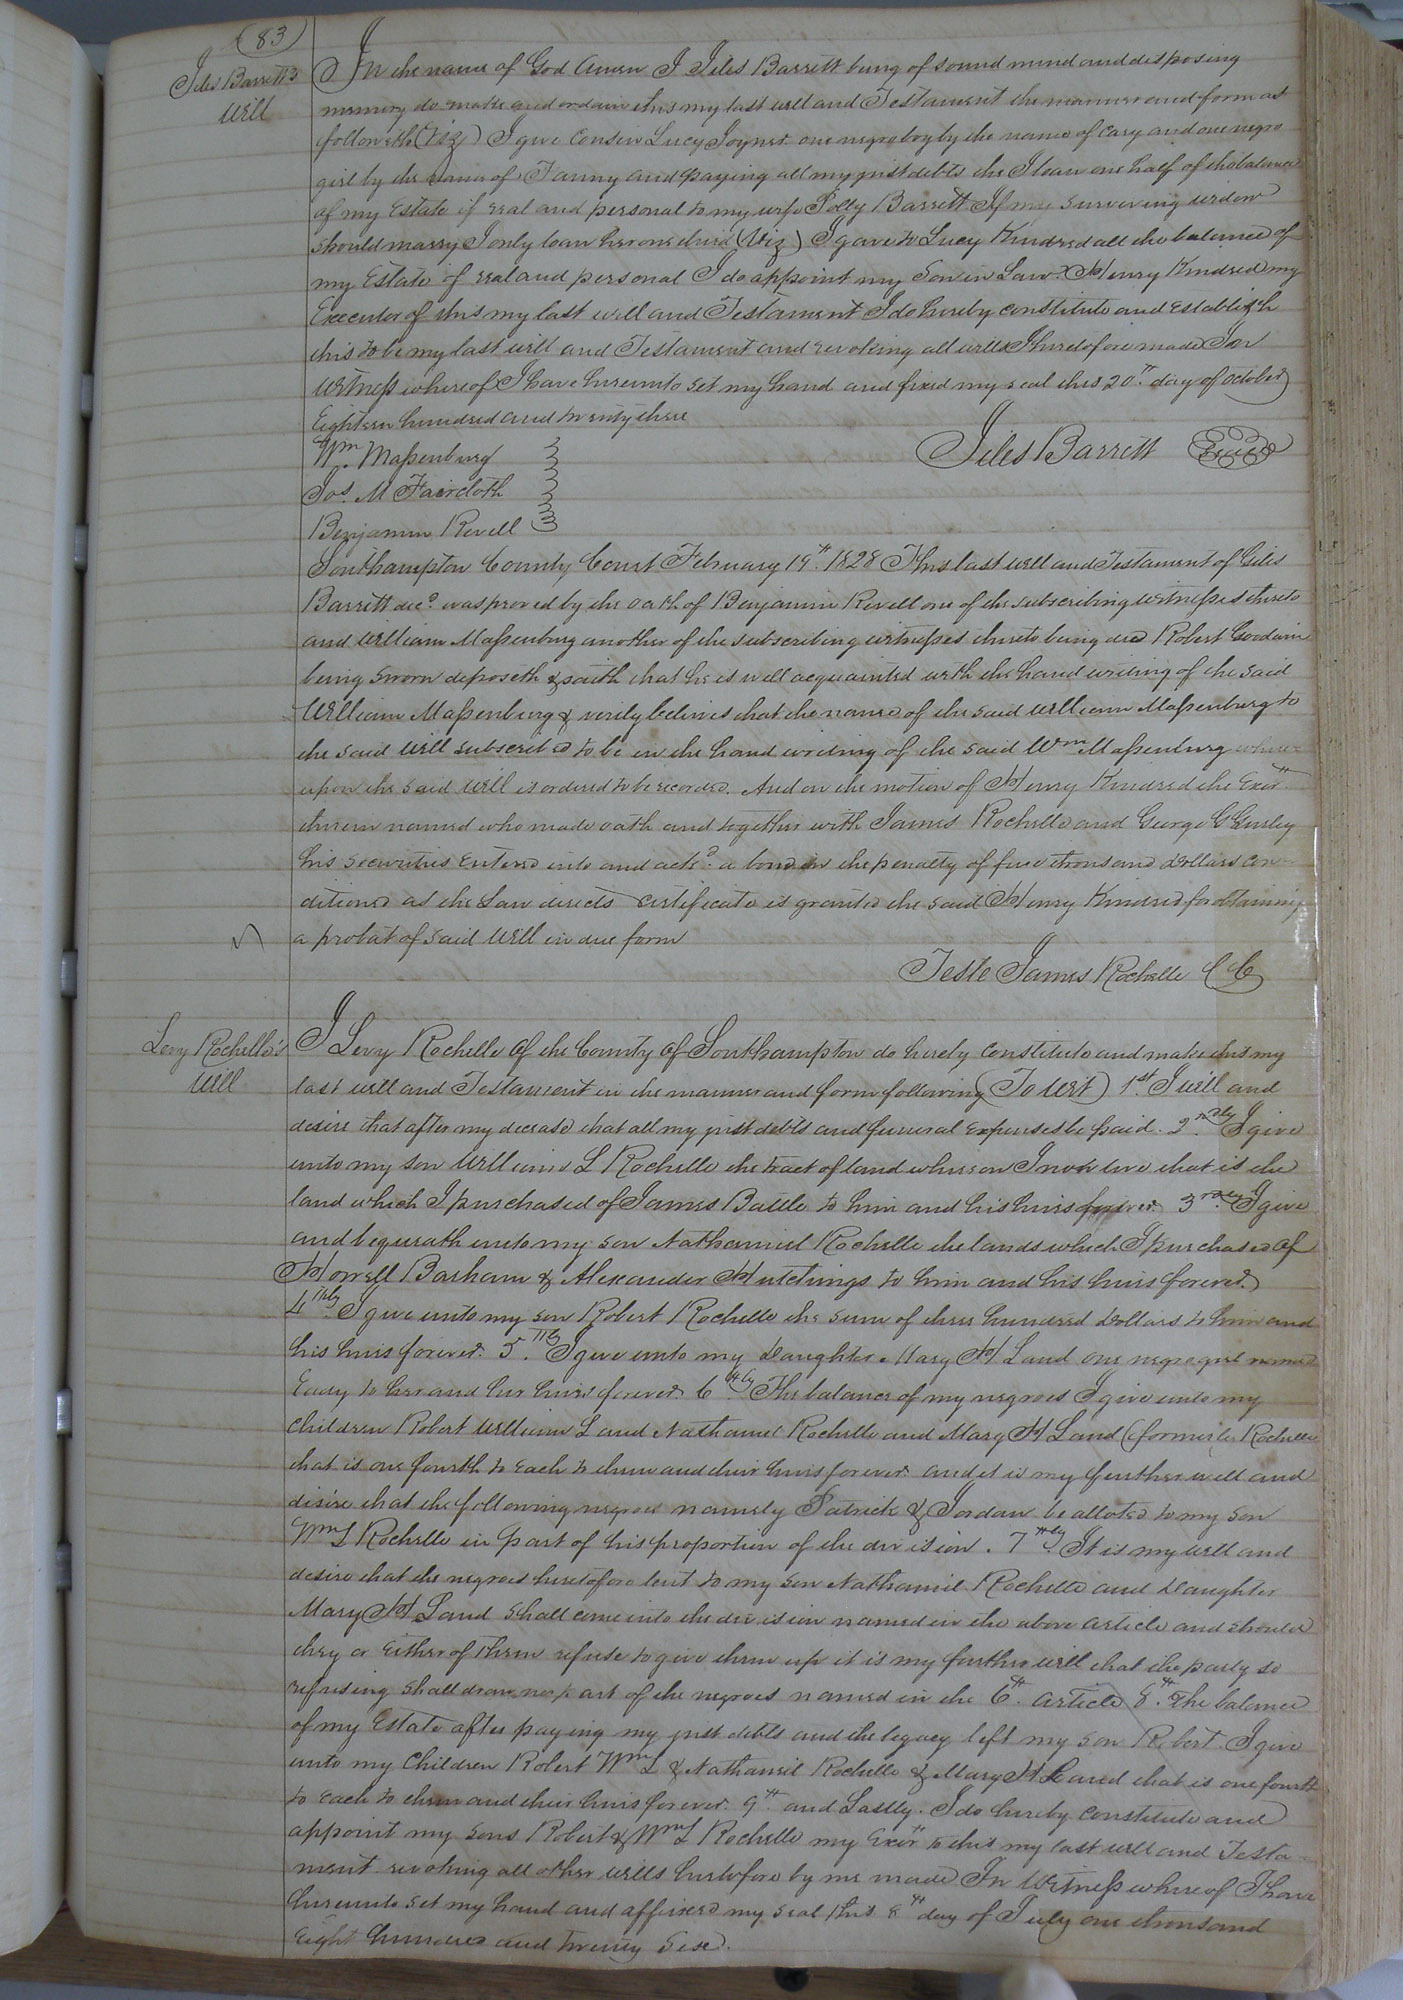 (83)
Jiles Barrett's
Will
In the name of God Amen I Jiles Barrett being of sound mind and disposing
memory do make and ordain this my last will and Testament the manner and form as
followeth (Viz) I give Lucy Joyner one negro boy by the name of Cary and one negro
girl by the name of Fanny and paying all my just debts the I loan one half of the balance
of my Estate if real and personal to my wife Polly Barrett If my surviving widow
should marry I only loan her one third (Viz) I gave to Lucy Kindred all the balance of
my Estate if real and personal I do appoint my Son in Law Henry Kindred my
Executor of this my last will and Testament I do hereby constitute and Establish
this to be my last will and Testament and revoking all wills heretofore made
Witness whereof I have hereunto set my hand and fixed my seal this 20th day of October
Eighteen hundred and twenty three
Jiles Barrett Seal
Wm Massenburg
Jos. M Faircloth
Benjamin Revell
Southampton County Court February 19th 1828 This last will and Testament of Giles
Barrett decd was proved by the oath of Benjamin Revell one of the subscribing witnesses thereto
and William Massenburg another of the subscribing witnesses thereto being dead Robert Goodwin
being sworn deposeth & saith that he is well acquainted with the hand writing of the said
William Massenburg & verily believes that the name of the said William Massenburg to
the said will subscribed to be in the hand writing of the said Wm Massenburg where
upon the said will is ordered to be recorded. And on the motion of Henry Kindred the Exor
therein named who made oath and together with James Rochelle and George Gurley
his securities Entered into and ackd a bond in the penalty of five thousand dollars con-
ditioned as the Law directs certificate is granted the said Henry Kindred for obtaining
a probat of said will in due form
Teste James Rochelle CC
Levy Rochelle's
Will
I Levy Rochelle of the County of Southampton do hereby constitute and make this my
last will and Testament in the manner and form following (To Wit) 1st I will and
desire that after my decease that all my just debts and funeral Expenses be paid. 2ndly I give
unto my son William L Rochelle the tract of land whereon I now live that is the
land which I purchased of James Battle to him and his heirs forever 3rdly I give
and bequeath unto my son Nathaniel Rochelle the lands which I purchased of
Howell Barham & Alexander Hutchings to him and his heirs forever.
4thly I give unto my son Robert Rochelle the sum of three hundred dollars to him and
his heirs forever. 5thly I give unto my Daughter Mary H Land one negro girl named
to her and her heirs forever 6thly The balance of my negroes I give unto my
children Robert William L and Nathaniel Rochelle and Mary H Land (formerly Rochelle
that is one fourth to Each to them and their heirs forever and it is my further will and
desire that the following negroes namely Patrick & Jordan be alloted to my son
Wm L Rochelle in part of his proportion of the division. 7thly It is my will and
desire that the negroes heretofore lent to my son Nathaniel Rochelle and Daughter
Mary H Land shall come into the division named in the above article and should
they or Either of them refuse to give them up it is my further will that the party so
refusing shall draw no part of the negroes named in the 6th article 8th The balance
of my Estate after paying my just debts and the legacy left my son Robert I give
unto my Children Robert Wm L & Nathaniel Rochelle & Mary H Land that is one fourth
to Each to them and their heirs forever. 9th and Lastly. I do hereby constitute and
appoint my sons Robert & Wm L Rochelle my Exors to this my last will and Testa-
ment revoking all other wills heretofore by me made In Witness whereof I have
hereunto set my hand and affixed my seal this 8th day of July one thousand
Eight hundred and twenty six.